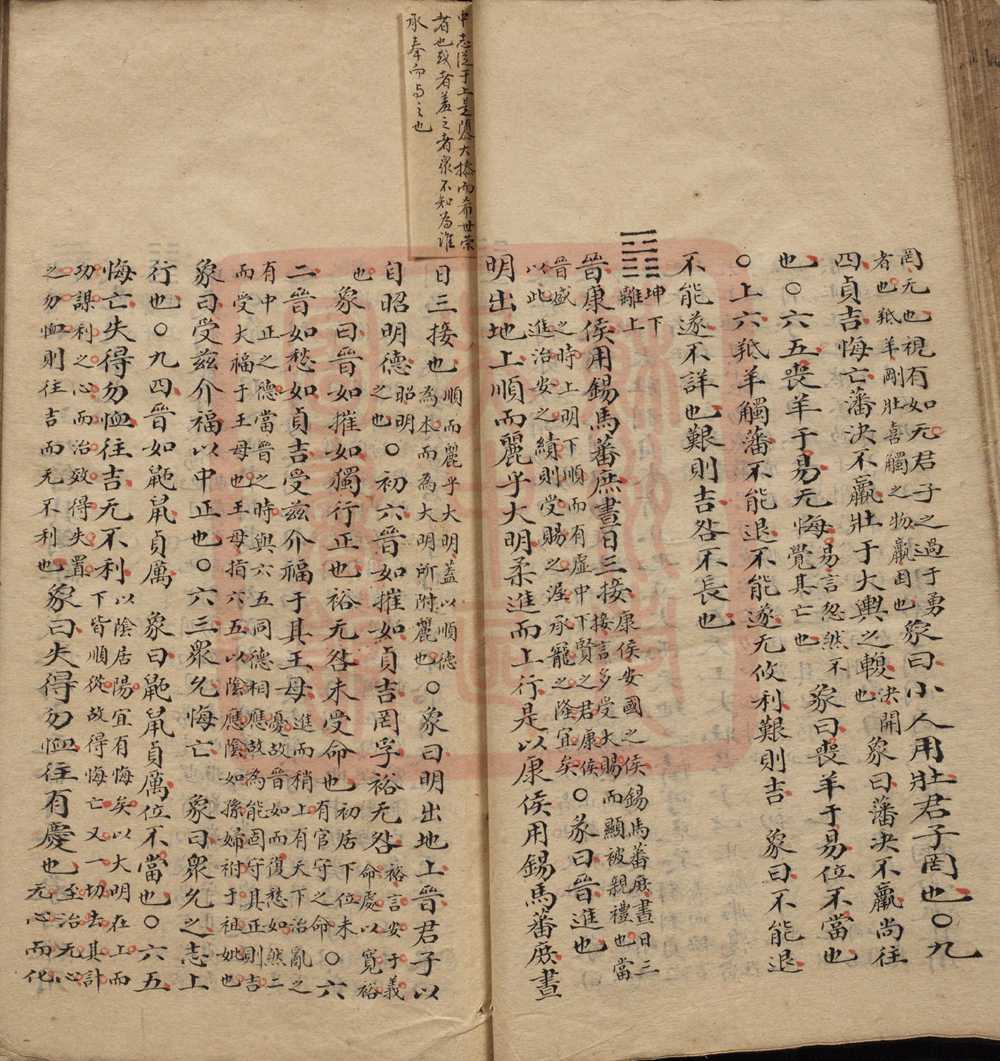 罔无也視有如无君子之過于勇
者也羝羊剛壯喜觸之物羸困也象曰小人用壯君子罔也○九
四貞吉悔亡藩決不羸壯于大輿之輹決開也象曰藩決不羸尚往
也○六五喪羊于易无悔易言忽然不覺其亡也象曰喪羊于易位不當也
○上六羝羊觸藩不能退不能遂无攸利艱則吉 象曰不能退
不能遂不詳也艱則吉咎不長也
坤下
離上
晉康侯用錫馬蕃庶晝日三接康侯安國之侯錫馬蕃庶晝日三接言多受大賜而顯被親禮也當
晉盛之時上明下順而有虛中下賢之君康侯
以此進治安之績則受賜之渥承寵之隆宜矣○彖曰晉進也
明出地上順而麗乎大明柔進而上行是以康侯用錫馬蕃庶晝
中志從于上是
大 而希世榮
者也 者羞之者衆不知為誰
承奉而 之也
日三接也順而麗乎大明蓋以順德為本而為大明所附麗也○象曰明出地上晉君子以
自昭明德昭明之也○初六晉如摧如貞吉罔孚裕无咎裕言安于義命處以寬裕
也象曰晉如摧如獨行正也裕无咎未受命也初居下位未有官守之命○六
二晉如愁如貞吉受茲介福于其王母進而稍上有天下治亂之憂故晉如而復愁如然二
有中正之德當晉之時與六五同德相應故為能固守其正則吉
而受大福于王母也王母指六五以陰應陰如孫婦祔于祖姑也
象曰受茲介福以中正也○六三衆允悔亡 象曰衆允之志上
行也○九四晉如鼫鼠貞厲 象曰鼫鼠貞厲位不當也○六五
悔亡失得勿恤往吉无不利以陰居陽宜有悔矣以大明在上而下皆順從故得悔亡又一切去其計
功謀利之心而治效得失置
之勿恤則往吉而无不利也象曰失得勿恤往有慶也至治无心无心而化